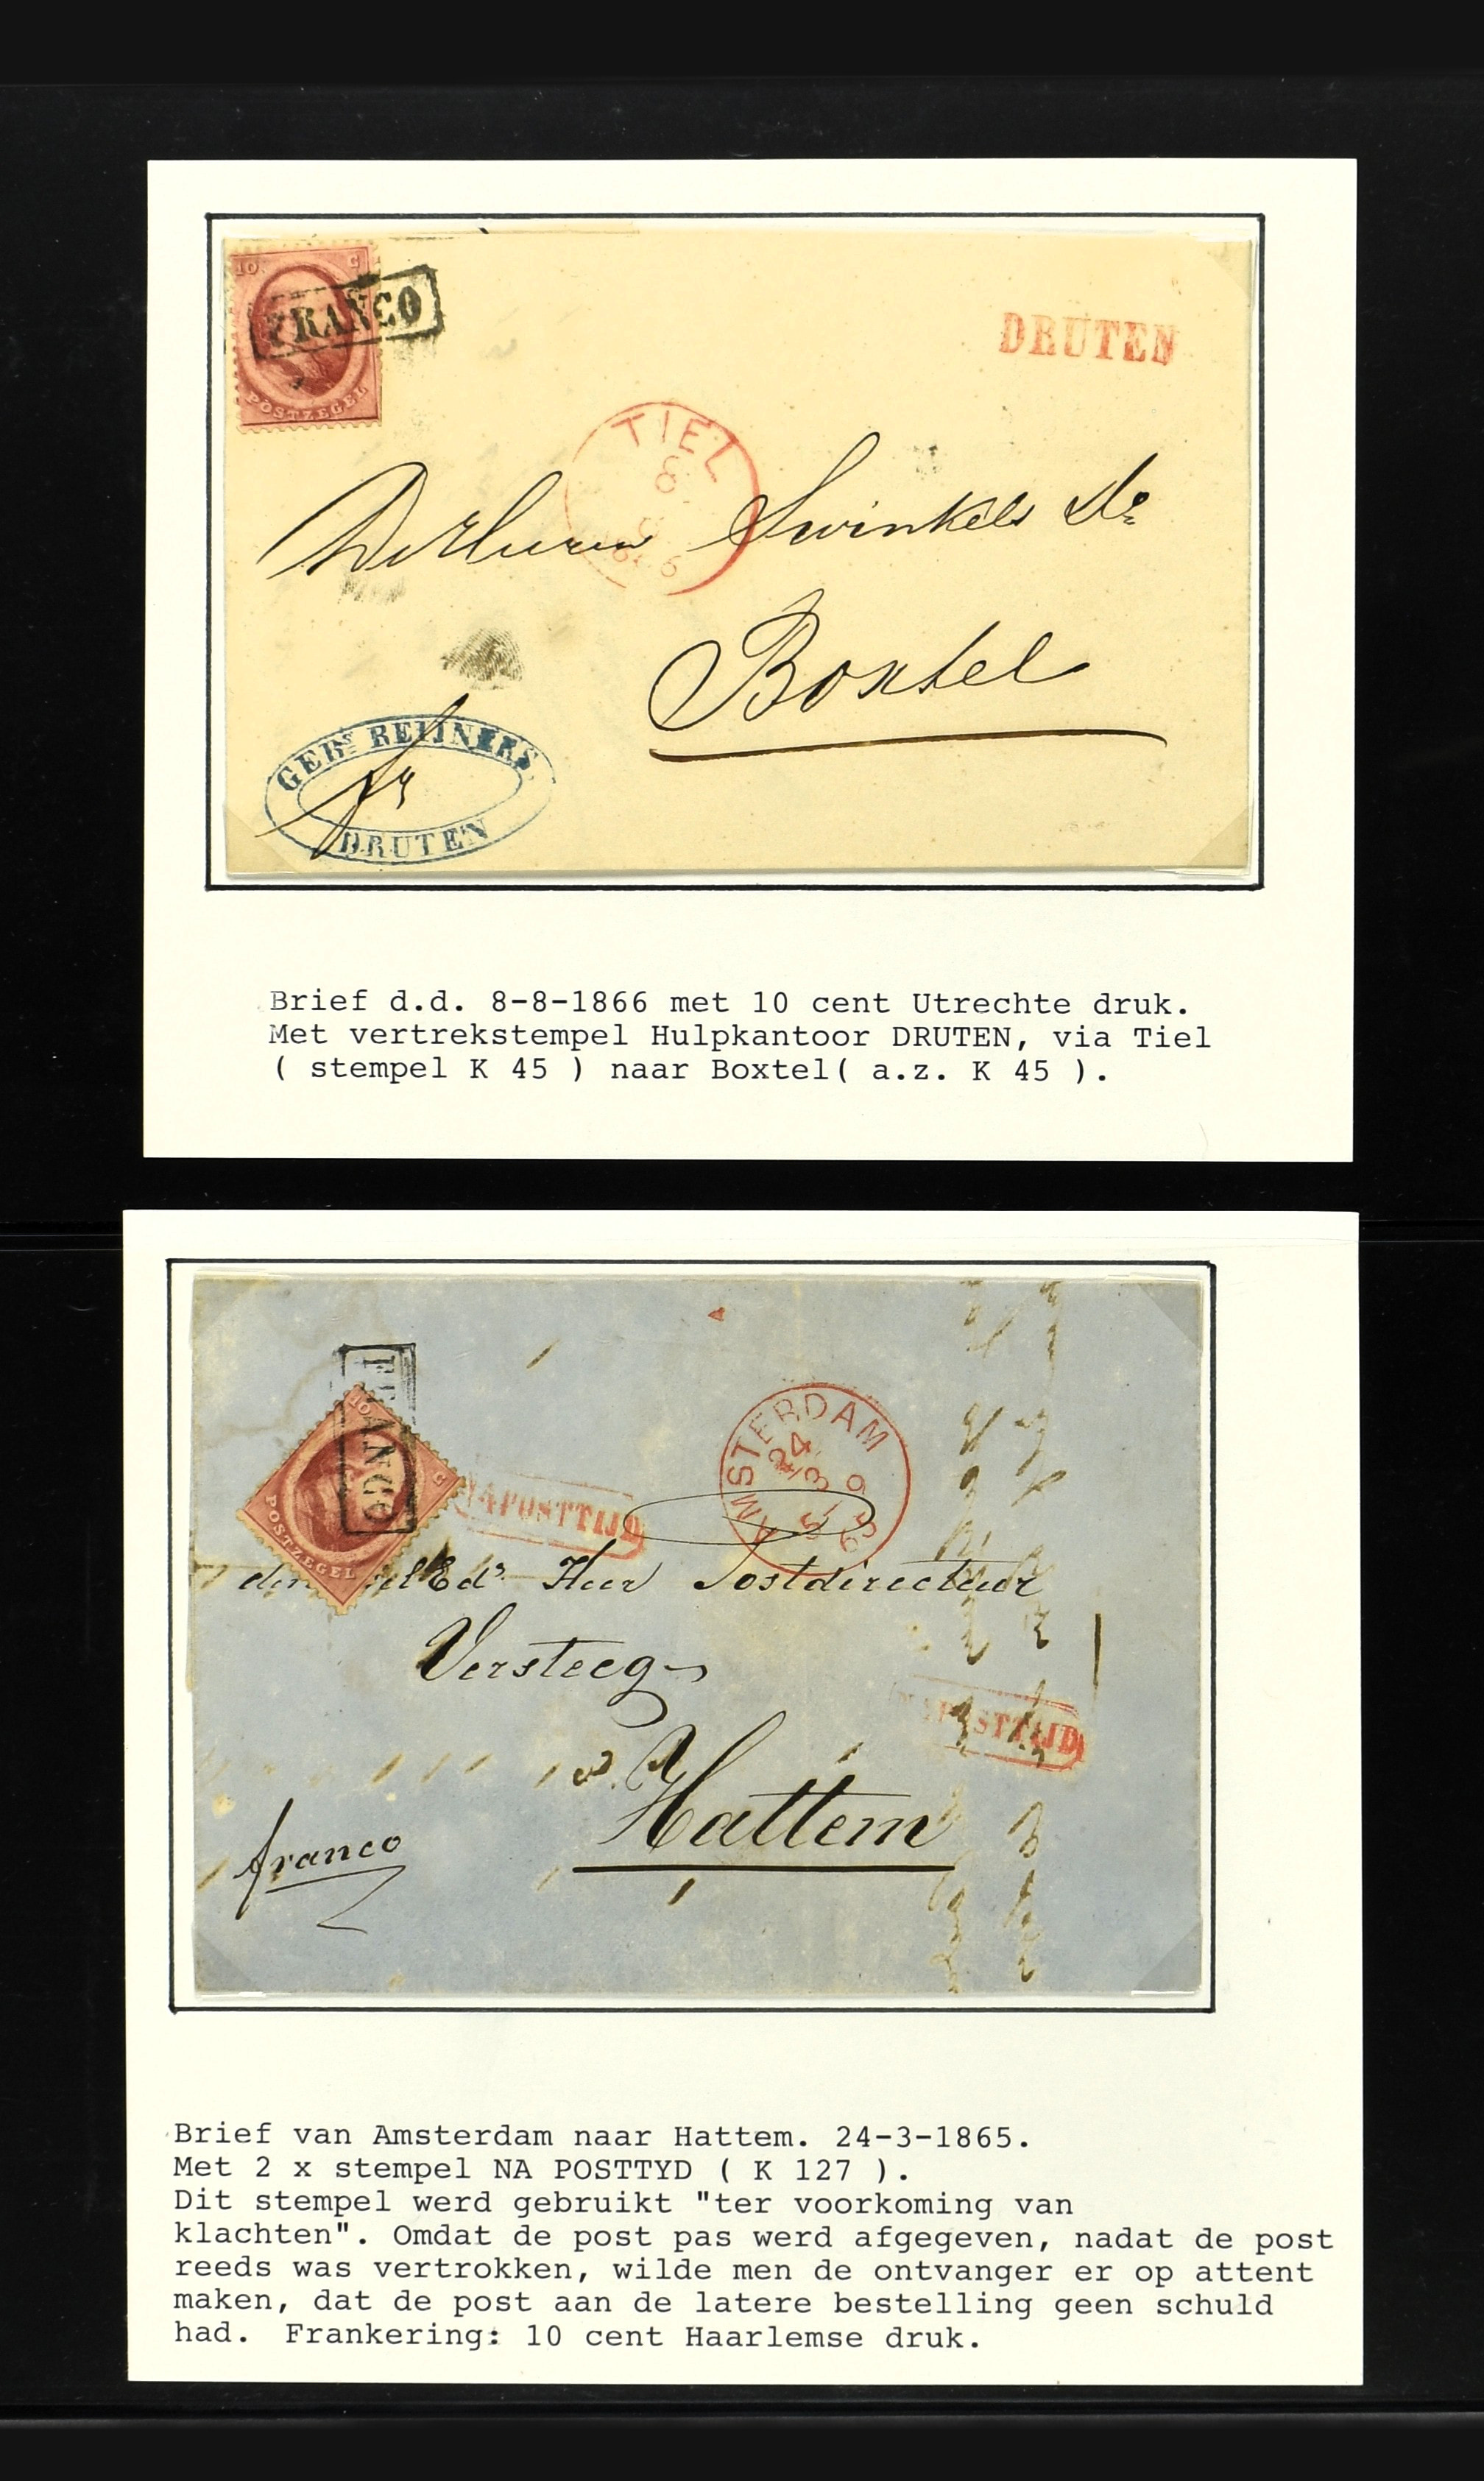 10 C
FRANCO
POSTZEGEL
DRUTEN
TIEL
8
8
1866
Swinkels
Boxtel
GEBRs REIJNIERS
DRUTEN
Brief d.d. 8-8-1866 met 10 cent Utrechte druk.
Met vertrekstempel Hulpkantoor DRUTEN, via Tiel
( stempel K 45 ) naar Boxtel( a.z. K 45 ).
10 C
FRANCO
POSTZEGEL
NAPOSTTIJD
AMSTERDAM
24/3
65
Heer Postdirecteur
Versteeg
NAPOSTTIJD
Hattem
franco
Brief van Amsterdam naar Hattem. 24-3-1865.
Met 2 x stempel NA POSTTYD ( K 127 ).
Dit stempel werd gebruikt "ter voorkoming van
klachten". Omdat de post pas werd afgegeven, nadat de post
reeds was vertrokken, wilde men de ontvanger er op attent
maken, dat de post aan de latere bestelling geen schuld
had. Frankering: 10 cent Haarlemse druk.